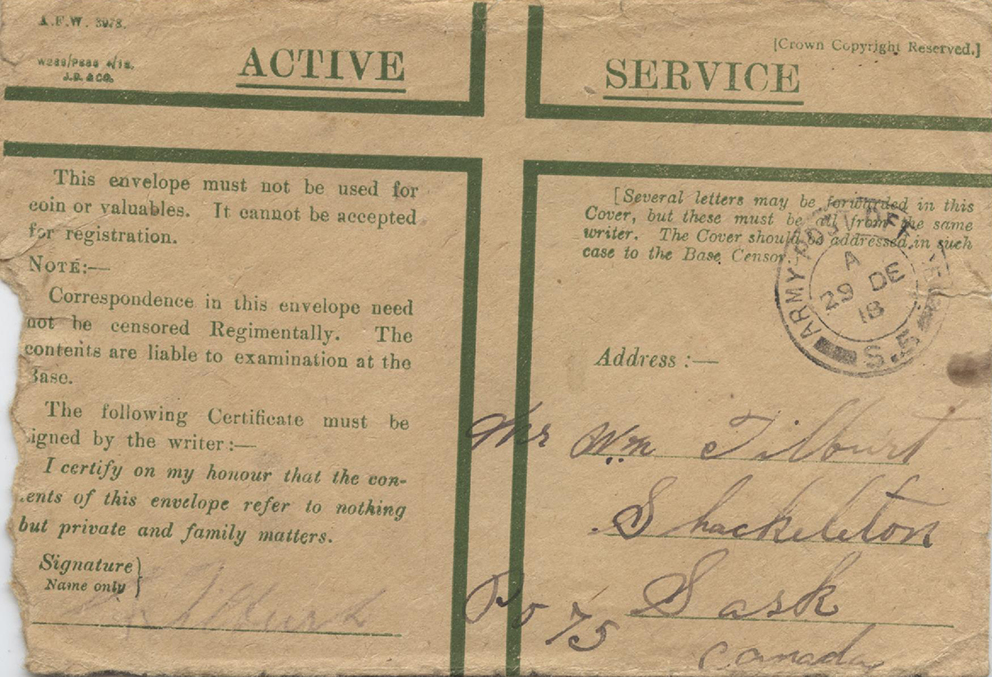 A.F.W. 3078.
J.D. & CO.
ACTIVE
SERVICE
[Crown Copyright Reserved.]
This envelope must not be used for
coin or valuables. It cannot be accepted
for registration.
NOTE:—
Correspondence in this envelope need
not be censored Regimentally. The
contents are liable to examination at the
Base.
The following Certificate must be
igned by the writer:—
I certify on my honour that the con-
ents of this envelope refer to nothing
but private and family matters.
Signature
Name only
Tilburt
[Several letters may be forwarded in this
Cover, but these must be all from the same
writer. The Cover should be addressed in such
case to the Base Censor.
ARMY POST OFFICE
A
29 DE
18
S.5
Address:—
Mr Wm Tilburt
Shackleton
Po 75 Sask
Canada